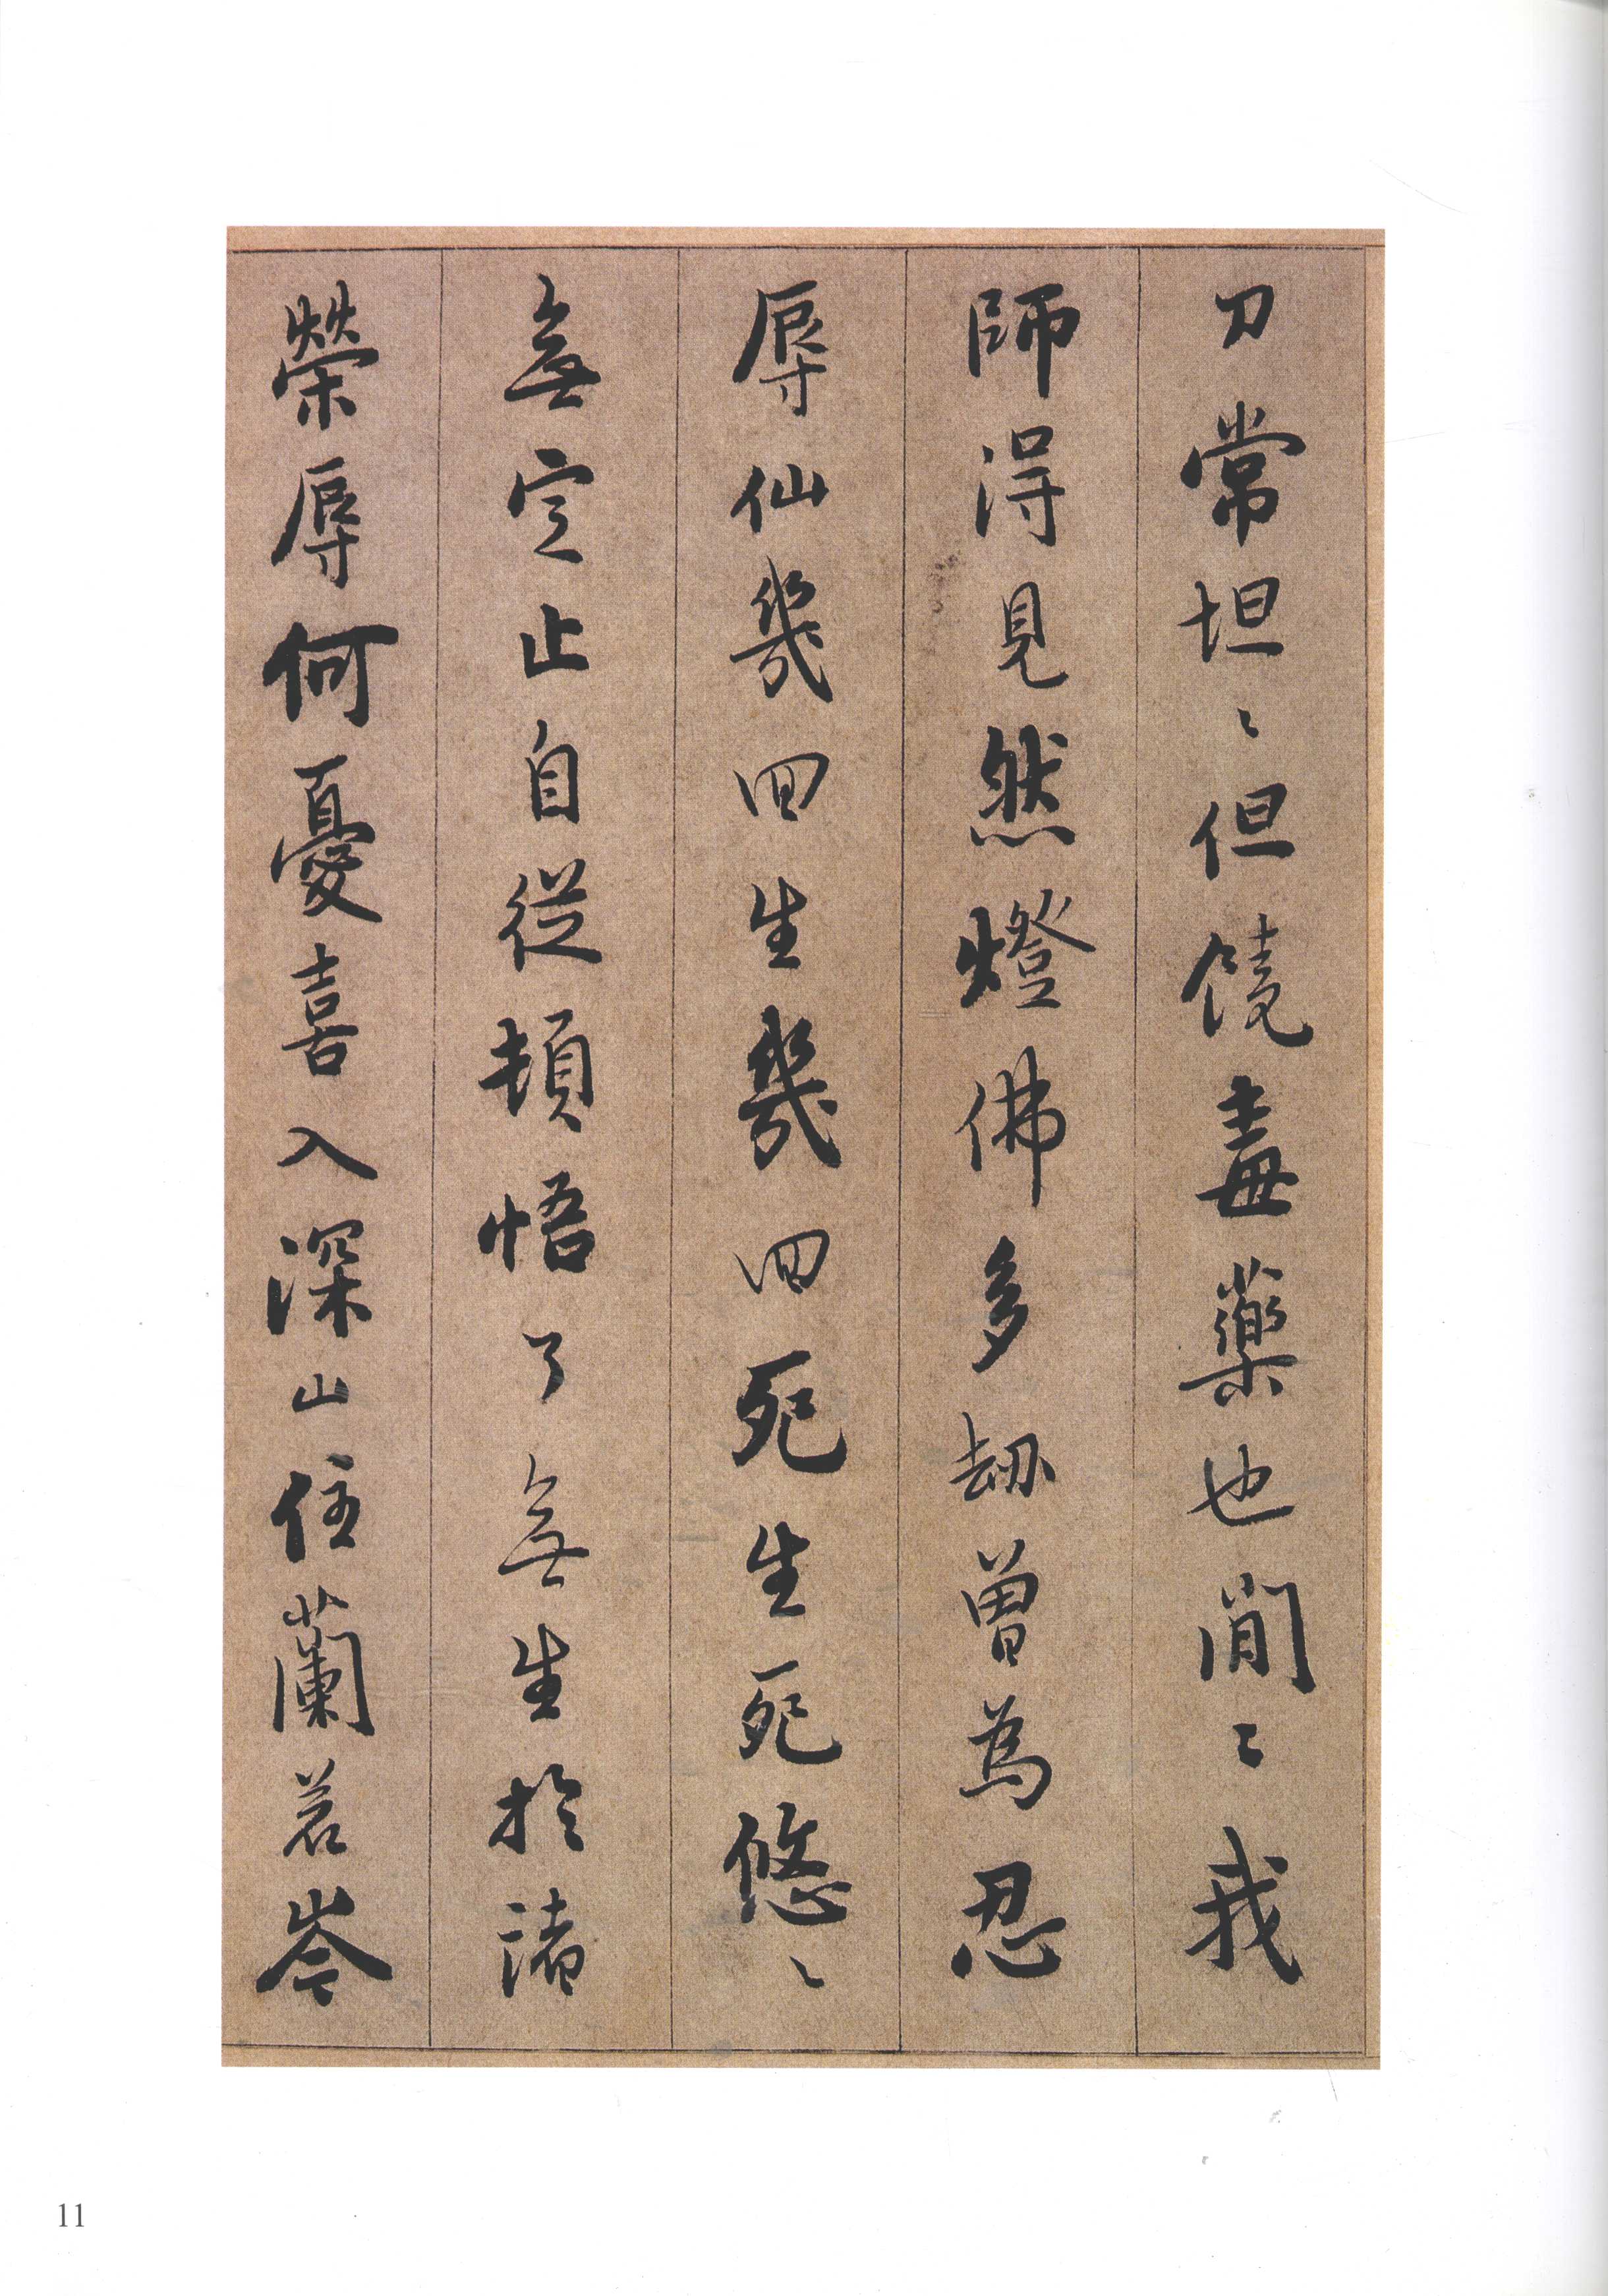 刀常坦〻但饒毒藥也閒〻我
師得見然燈佛多劫曾為忍
辱仙幾回生幾回死生死悠〻
無定止自從頓悟了無生於諸
榮辱何憂喜入深山住蘭若岑
11